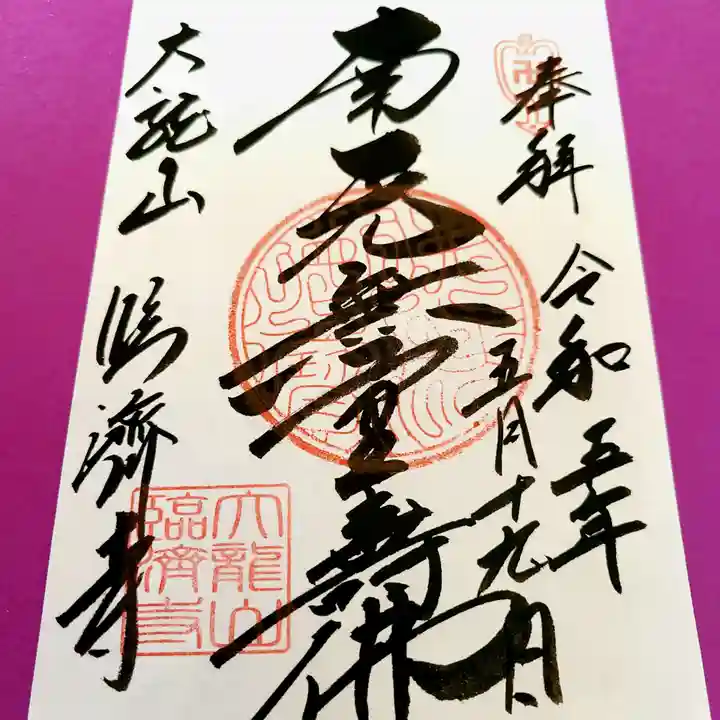 奉拝
令和五年
五月十九日
南无無量壽佛
大龍山
臨済寺
大龍山
臨濟寺